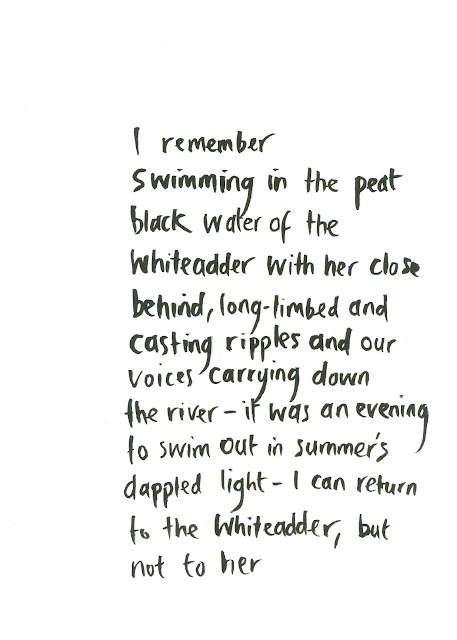 I remember
Swimming in the peat
black water of the
Whiteadder with her close
behind, long-limbed and
casting ripples and our
voices carrying down
the river – it was an evening
to swim out in summer's
dappled light – I can return
to the Whiteadder, but
not to her